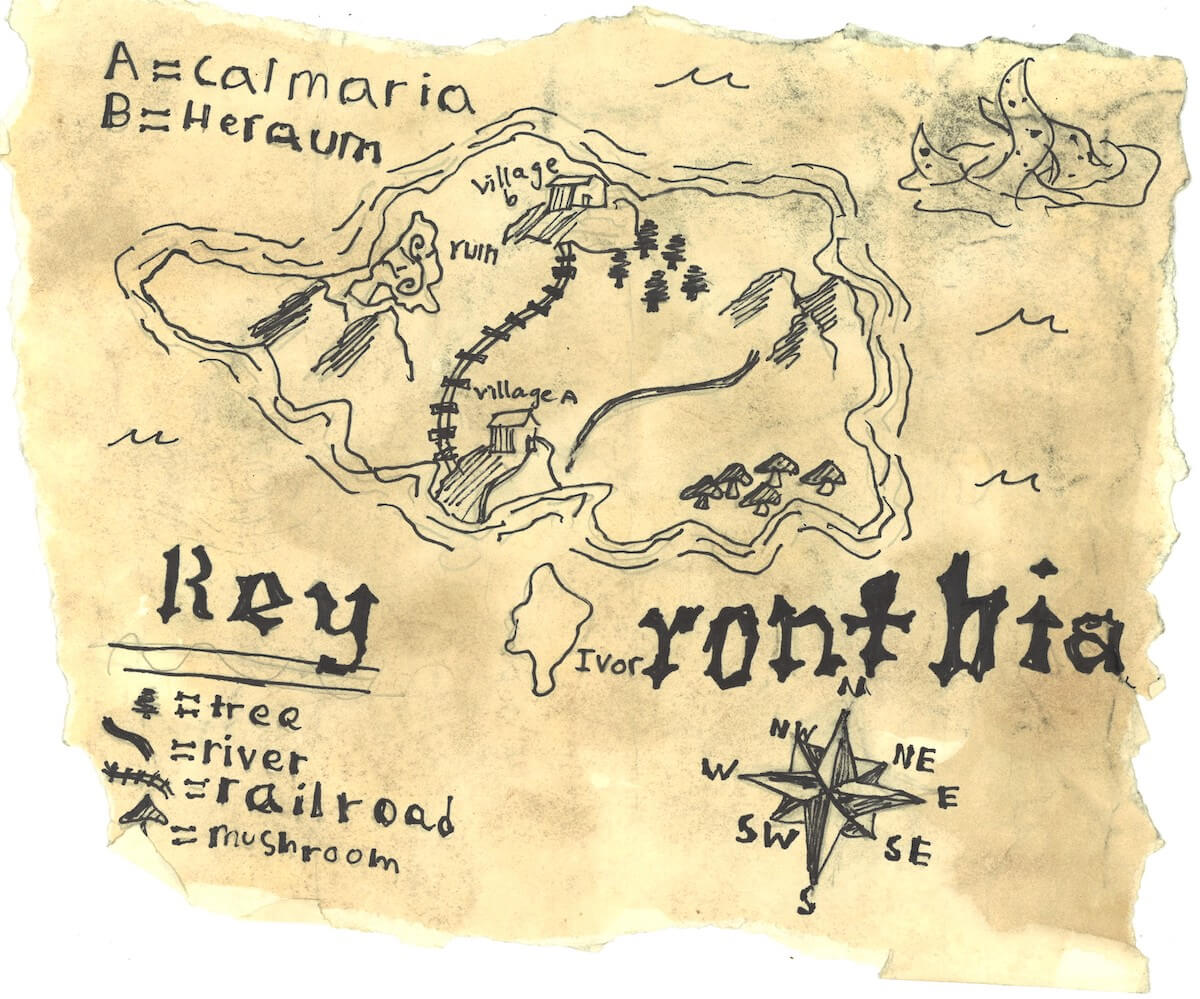 A = Calmaria
B = Heraum
village
b
ruin
village A
Key
Ivor
ronthia
= tree
= river
= railroad
= mushroom
N
NW
NE
W
E
SW
SE
S